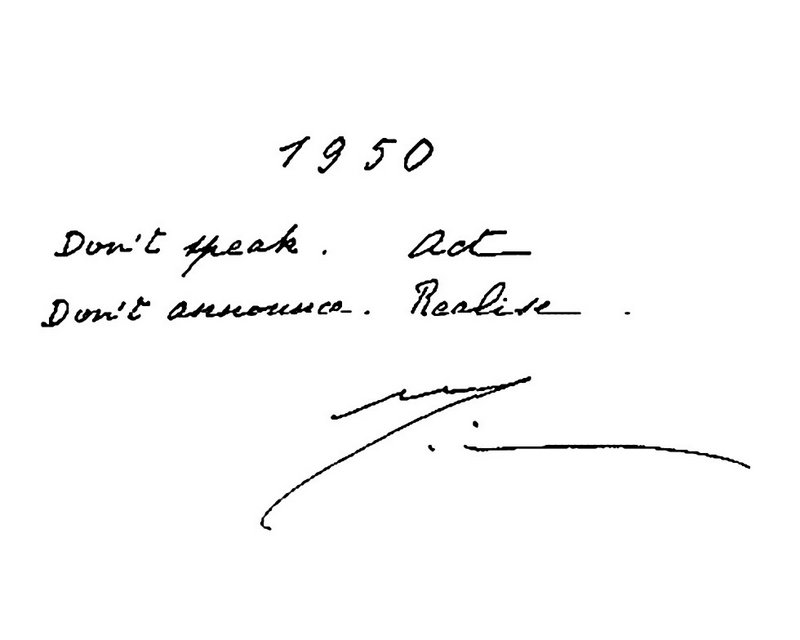 1950
Don't speak. Act
Don't announce. Realise.